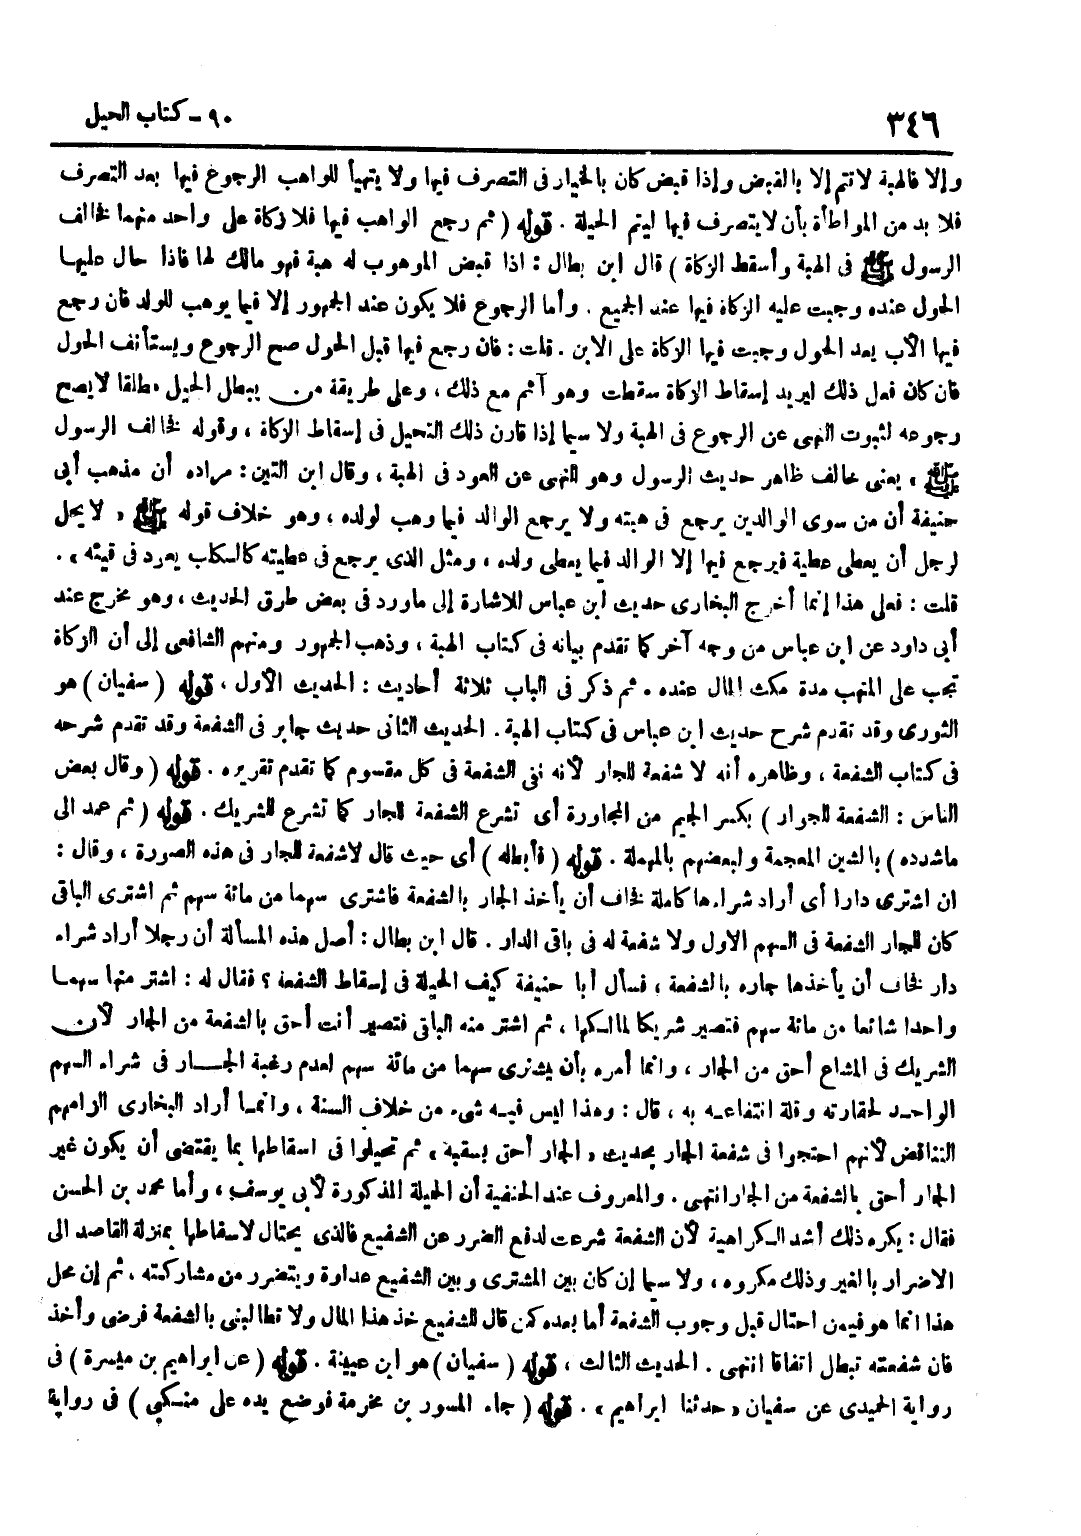 ٣٤٦
٩٠ - كتاب الحيل
وإلا فالهبة لا تتم إلا بالقبض وإذا قبض كان بالخيار فى التصرف فيها ولا يتهيأ للواهب الرجوع فيها بعد التصرف
فلا بد من المواطأة بأن لا يتصرف فيها ليتم الحيلة . قوله ( ثم رجع الواهب فيها فلا زكاة على واحد منهما فخالف
الرسول ﷺ فى الهبة وأسقط الزكاة ) قال ابن بطال : اذا قبض الموهوب له هبة فهو مالك لها فاذا حال عليها
الحول عنده وجبت عليه الزكاة فيها عند الجميع . وأما الرجوع فلا يكون عند الجمهور إلا فيما يوهب للولد فان رجع
فيها الأب بعد الحول وجبت فيها الزكاة على الابن . قلت : فان رجع فيها قبل الحول صح الرجوع ويستأنف الحول
فان كان فعل ذلك ليريد إسقاط الزكاة سقطت وهو آثم مع ذلك ، وعلى طريقة من يبطل الحيل مطلقا لا يصح
رجوعه لثبوت النهى عن الرجوع فى الهبة ولا سيما إذا قارن ذلك التحيل فى إسقاط الزكاة ، وقوله فخالف الرسول
ﷺ ، يعنى خالف ظاهر حديث الرسول وهو النهى عن العود فى الهبة ، وقال ابن التين : مراده أن مذهب أبى
حنيفة أن من سوى الوالدين يرجع فى هبته ولا يرجع الوالد فيما وهب لولده ، وهو خلاف قوله ﷺ « لا يحل
لرجل أن يعطى عطية فيرجع فيها إلا الوالد فيما يعطى ولده ، ومثل الذى يرجع فى عطيته كالكلب يعود فى قيئه » .
قلت : فعلى هذا إنما أخرج البخارى حديث ابن عباس للاشارة إلى ما ورد فى بعض طرق الحديث ، وهو مخرج عند
أبى داود عن ابن عباس من وجه آخر كما تقدم بيانه فى كتاب الهبة ، وذهب الجمهور ومنهم الشافعى إلى أن الزكاة
تجب على المتهب مدة مكث المال عنده . ثم ذكر فى الباب ثلاثة أحاديث : الحديث الأول ، قوله ( سفيان ) هو
الثورى وقد تقدم شرح حديث ابن عباس فى كتاب الهبة . الحديث الثانى حديث جابر فى الشفعة وقد تقدم شرحه
فى كتاب الشفعة ، وظاهره أنه لا شفعة للجار لأنه نفى الشفعة فى كل مقسوم كما تقدم تقريره . قوله ( وقال بعض
الناس : الشفعة للجوار ) بكسر الجيم من المجاورة أى تشرع الشفعة للجار كما تشرع للشريك . قوله ( ثم عمد الى
ماشدده ) بالشين المعجمة ولبعضهم بالمهملة . قوله ( فأبطله ) أى حيث قال لا شفعة للجار فى هذه الصورة ، وقال :
ان اشترى دارا أى أراد شراءها كاملة فخاف أن يأخذ الجار بالشفعة فاشترى سهما من مائة سهم ثم اشترى الباقى
كان للجار الشفعة فى السهم الاول ولا شفعة له فى باقى الدار . قال ابن بطال : أصل هذه المسألة أن رجلا أراد شراء
دار فخاف أن يأخذها جاره بالشفعة ، فسأل أبا حنيفة كيف الحيلة فى إسقاط الشفعة ؟ فقال له : اشتر منها سهما
واحدا شائعا من مائة سهم فتصير شريكا لمالكها ، ثم اشتر منه الباقى فتصير أنت أحق بالشفعة من الجار لأن
الشريك فى المشاع أحق من الجار ، وانما أمره بأن يشترى سهما من مائة سهم لعدم رغبة الجار فى شراء السهم
الواحد لحقارته وقلة انتفاعه به ، قال : وهذا ليس فيه شىء من خلاف السنة ، وانما أراد البخارى الزامهم
التناقض لأنهم احتجوا فى شفعة الجار بحديث « الجار أحق بسقبه » ثم تحيلوا فى اسقاطها بما يقتضى أن يكون غير
الجار أحق بالشفعة من الجار انتهى . والمعروف عند الحنفية أن الحيلة المذكورة لأبى يوسف ، وأما محمد بن الحسن
فقال : يكره ذلك أشد الكراهية لأن الشفعة شرعت لدفع الضرر عن الشفيع فالذى يحتال لاسقاطها بمنزلة القاصد الى
الاضرار بالغير وذلك مكروه ، ولا سيما إن كان بين المشترى وبين الشفيع عداوة ويتضرر من مشاركته ، ثم إن محل
هذا انما هو فيمن احتال قبل وجوب الشفعة أما بعده كمن قال للشفيع خذ هذا المال ولا تطالبنى بالشفعة فرضى وأخذ
فان شفعته تبطل اتفاقا انتهى . الحديث الثالث ، قوله ( سفيان ) هو ابن عيينة . قوله ( عن ابراهيم بن ميسرة ) فى
رواية الحميدى عن سفيان « حدثنا ابراهيم » . قوله ( جاء المسور بن مخرمة فوضع يده على منكبى ) فى رواية